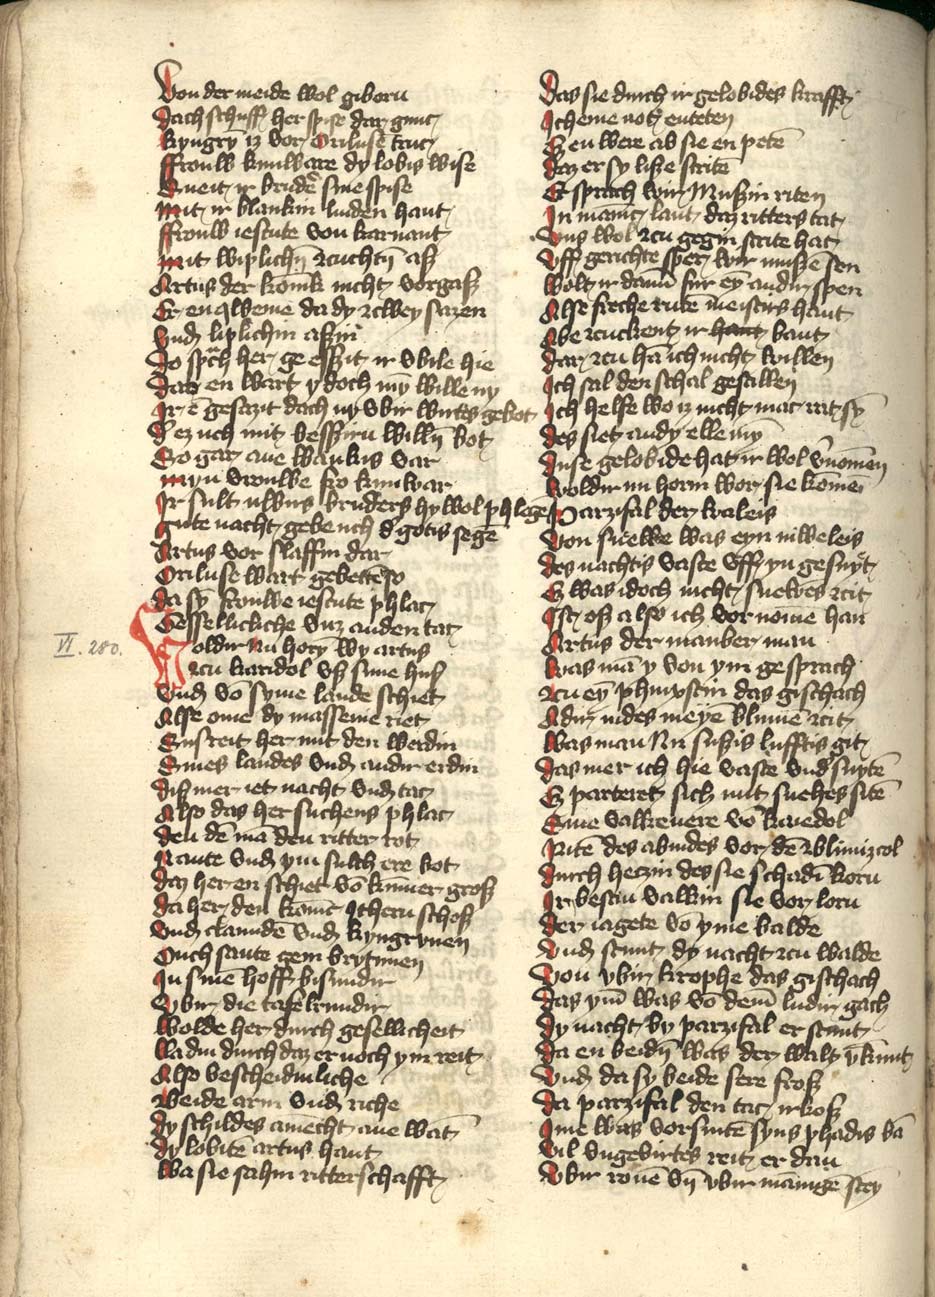 Von der meide wol giboru
Dach schuff her spise dar gnuc
kyngrȳ iz vor Oriluse truc
ffrouw kunware dy lobis wise
Sneit ir brudēr sine spise
mit ir blankin linden hant
ffrouw iescute von karnant
mit wiplichin zcuchtin aß
Artus der konik nicht vorgaß
Er enqweme da dy zcwey sazen
Vnd liplichin assin
Do sprch her ge essit ir vbile hie
Daz en wart y doch mȳ wille ny
Ir ē gesazit dach ny vbir wirtes gebot
Der uch mit besszirn willin bot
So gar ane wankis var
myn vrouwe fro kunwar
Ir sult uwirs bruders hy wol phlegē
gute nacht gebe uch d gotis segē
Artus vor slaffin dar
Oriluse wart gebettē so
da sȳ frouwe iescute phlac
Gessellicliche vnz an den tac
Woldir nu horn wy artus
zcu karidol vß sime huß
VI. 280.
Vnd vō syme lande schiet
Alse ome dy massenie riet
Sus reit her mit den werdin
Sines landes vnd andir erdin
diß mer iet nacht vnd tac
Also das her suchens phlac
den dē mā den ritter rot
Nante vnd ym sulch ere bot
daz her en schiet vō kummer groß
da her den konic Ithern schoß
Vnd clamidē vnd kyngrymen
Ouch sante gein brytmen
In sinē hoff bisundir
Vbir die tafelrundir
wolde her durch gesellicheit
ladin durch daz er noch ym reit
Also bescheidinliche
beide arm vnd riche
dy schildes amecht ane wāt
dy lobitē artus hant
Wa sie sahin ritterschafft
Das sie durch ir gelobides krafft
Icheine not entetēn
Ez en were ab sie en petē
daz er sy lisze stritē
Er sprach wir musszin riten
In manic lant daz ritters tat
Vns wol zcu gegin strite hat
Vff gerichte sper wir musze sen
Wolt ir dann für eȳ andir spen
Alse freche rute meistirs hant
Abe zcuckent ir hant bant
dar zcu hā ich nicht willen
Ich sal den schal gestillen
Ich helfe wo iz nicht mac rat sȳ
des siet an dy elle mȳ
Duse gelobide hat ir wol vnomen
woldir nu horin wor sie komē
Parzifal der waleis
Von snewe was eyn niweleis
des nachtis vaste vff yn gesnyt
Ez was idoch nicht snewes zcit
Ist oß also ich vor nome han
Artus der manber man
was mā y von ym gesprach
zcu eȳ phinxstin das gischach
Adir indes meyē blumē zcit
was man Nu sußis lufftis git
das mer ich hie vaste vnd snytē
Ez parteret sich mit snehes sitē
Sine valkenere vō karedol
Ritē des abindes vor dē zblimizcol
durch heczin des sie schadī koru
Ir bestin valkin sie vor loru
der iagete vō yme balde
Vnd stunt dy nacht zcu walde
von vbir krophe das gischach
das ym was vō dem ludir gach
dy nacht by parzifal er stunt
da en beidin was der walt vkunt
Vnd da sy beide sere froß
da parzifal den tac irkoß
Ime was vorsnitē syns phadis bā
Vil vngevirtes reit er dan
Vbir ronē vn vbir mānigē stey